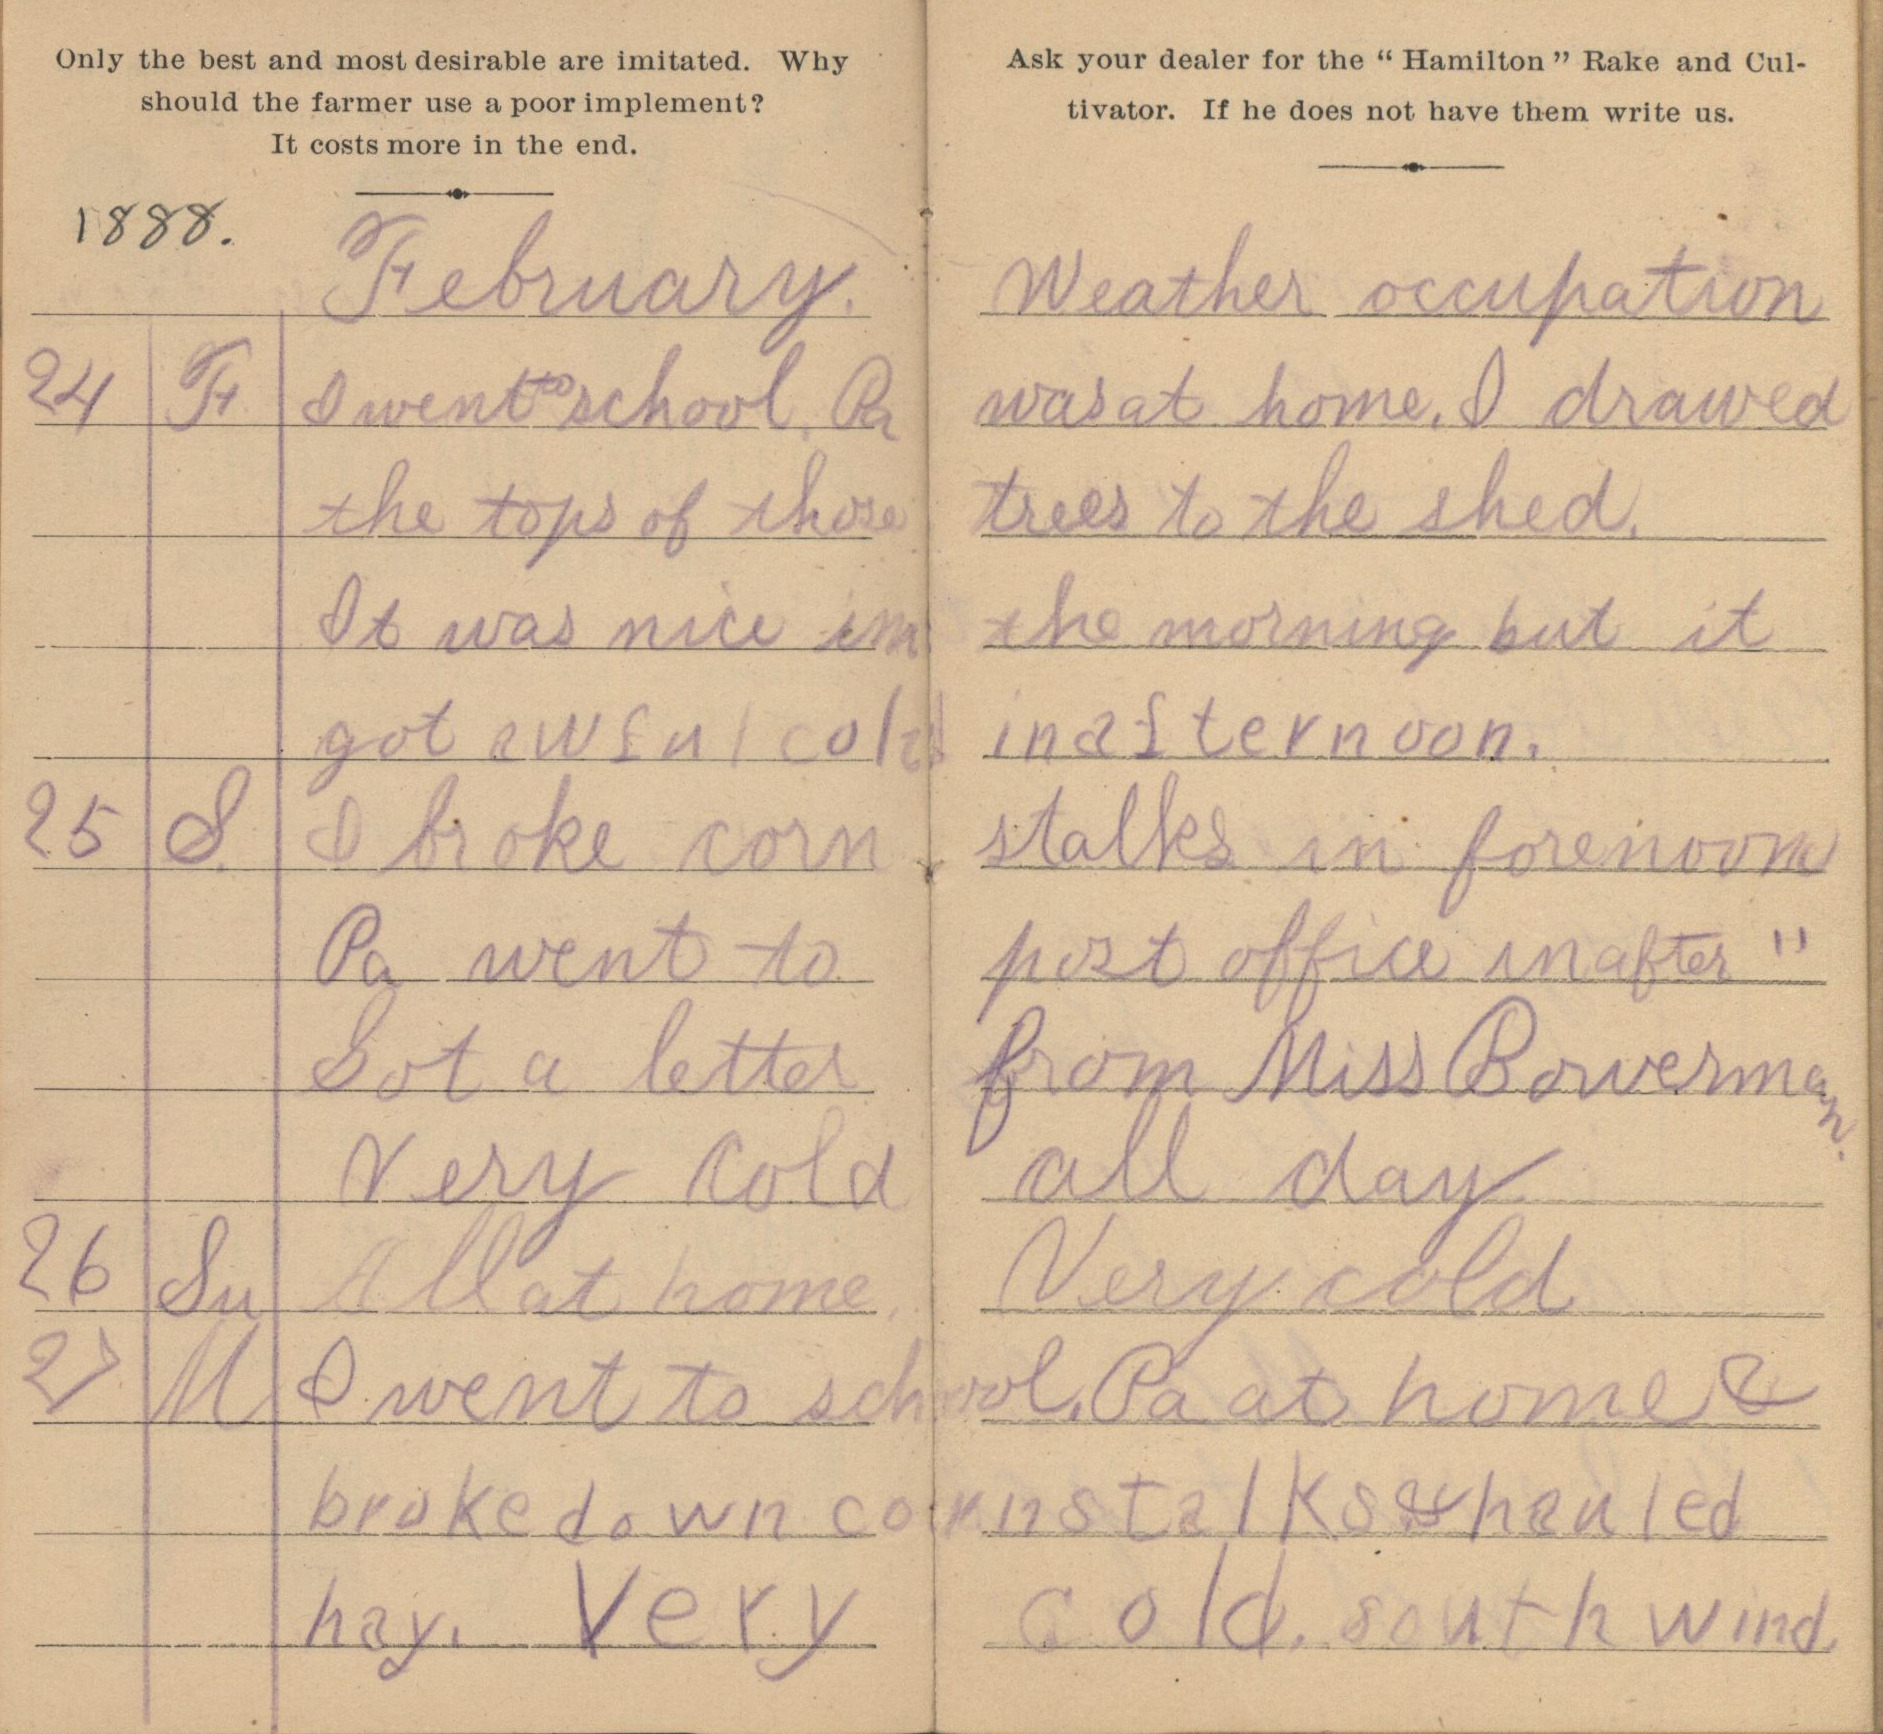 Only the best and most desirable are imitated. Why
should the farmer use a poor implement?
It costs more in the end.
Ask your dealer for the “Hamilton” Rake and Cul-
tivator. If he does not have them write us.
1888.
February. Weather occupation
24 F I went to school. Pa was at home. I drawed
the tops of those trees to the shed.
It was nice in the morning but it
got awful cold in afternoon.
25 S. I broke corn stalks in forenoon
Pa went to post office in after "
Got a letter from Miss Bowerman.
Very Cold all day
26 Su All at home. Very cold
27 M I went to school. Pa at home &
broke down cornstalks & hauled
hay. Very cold. south wind.